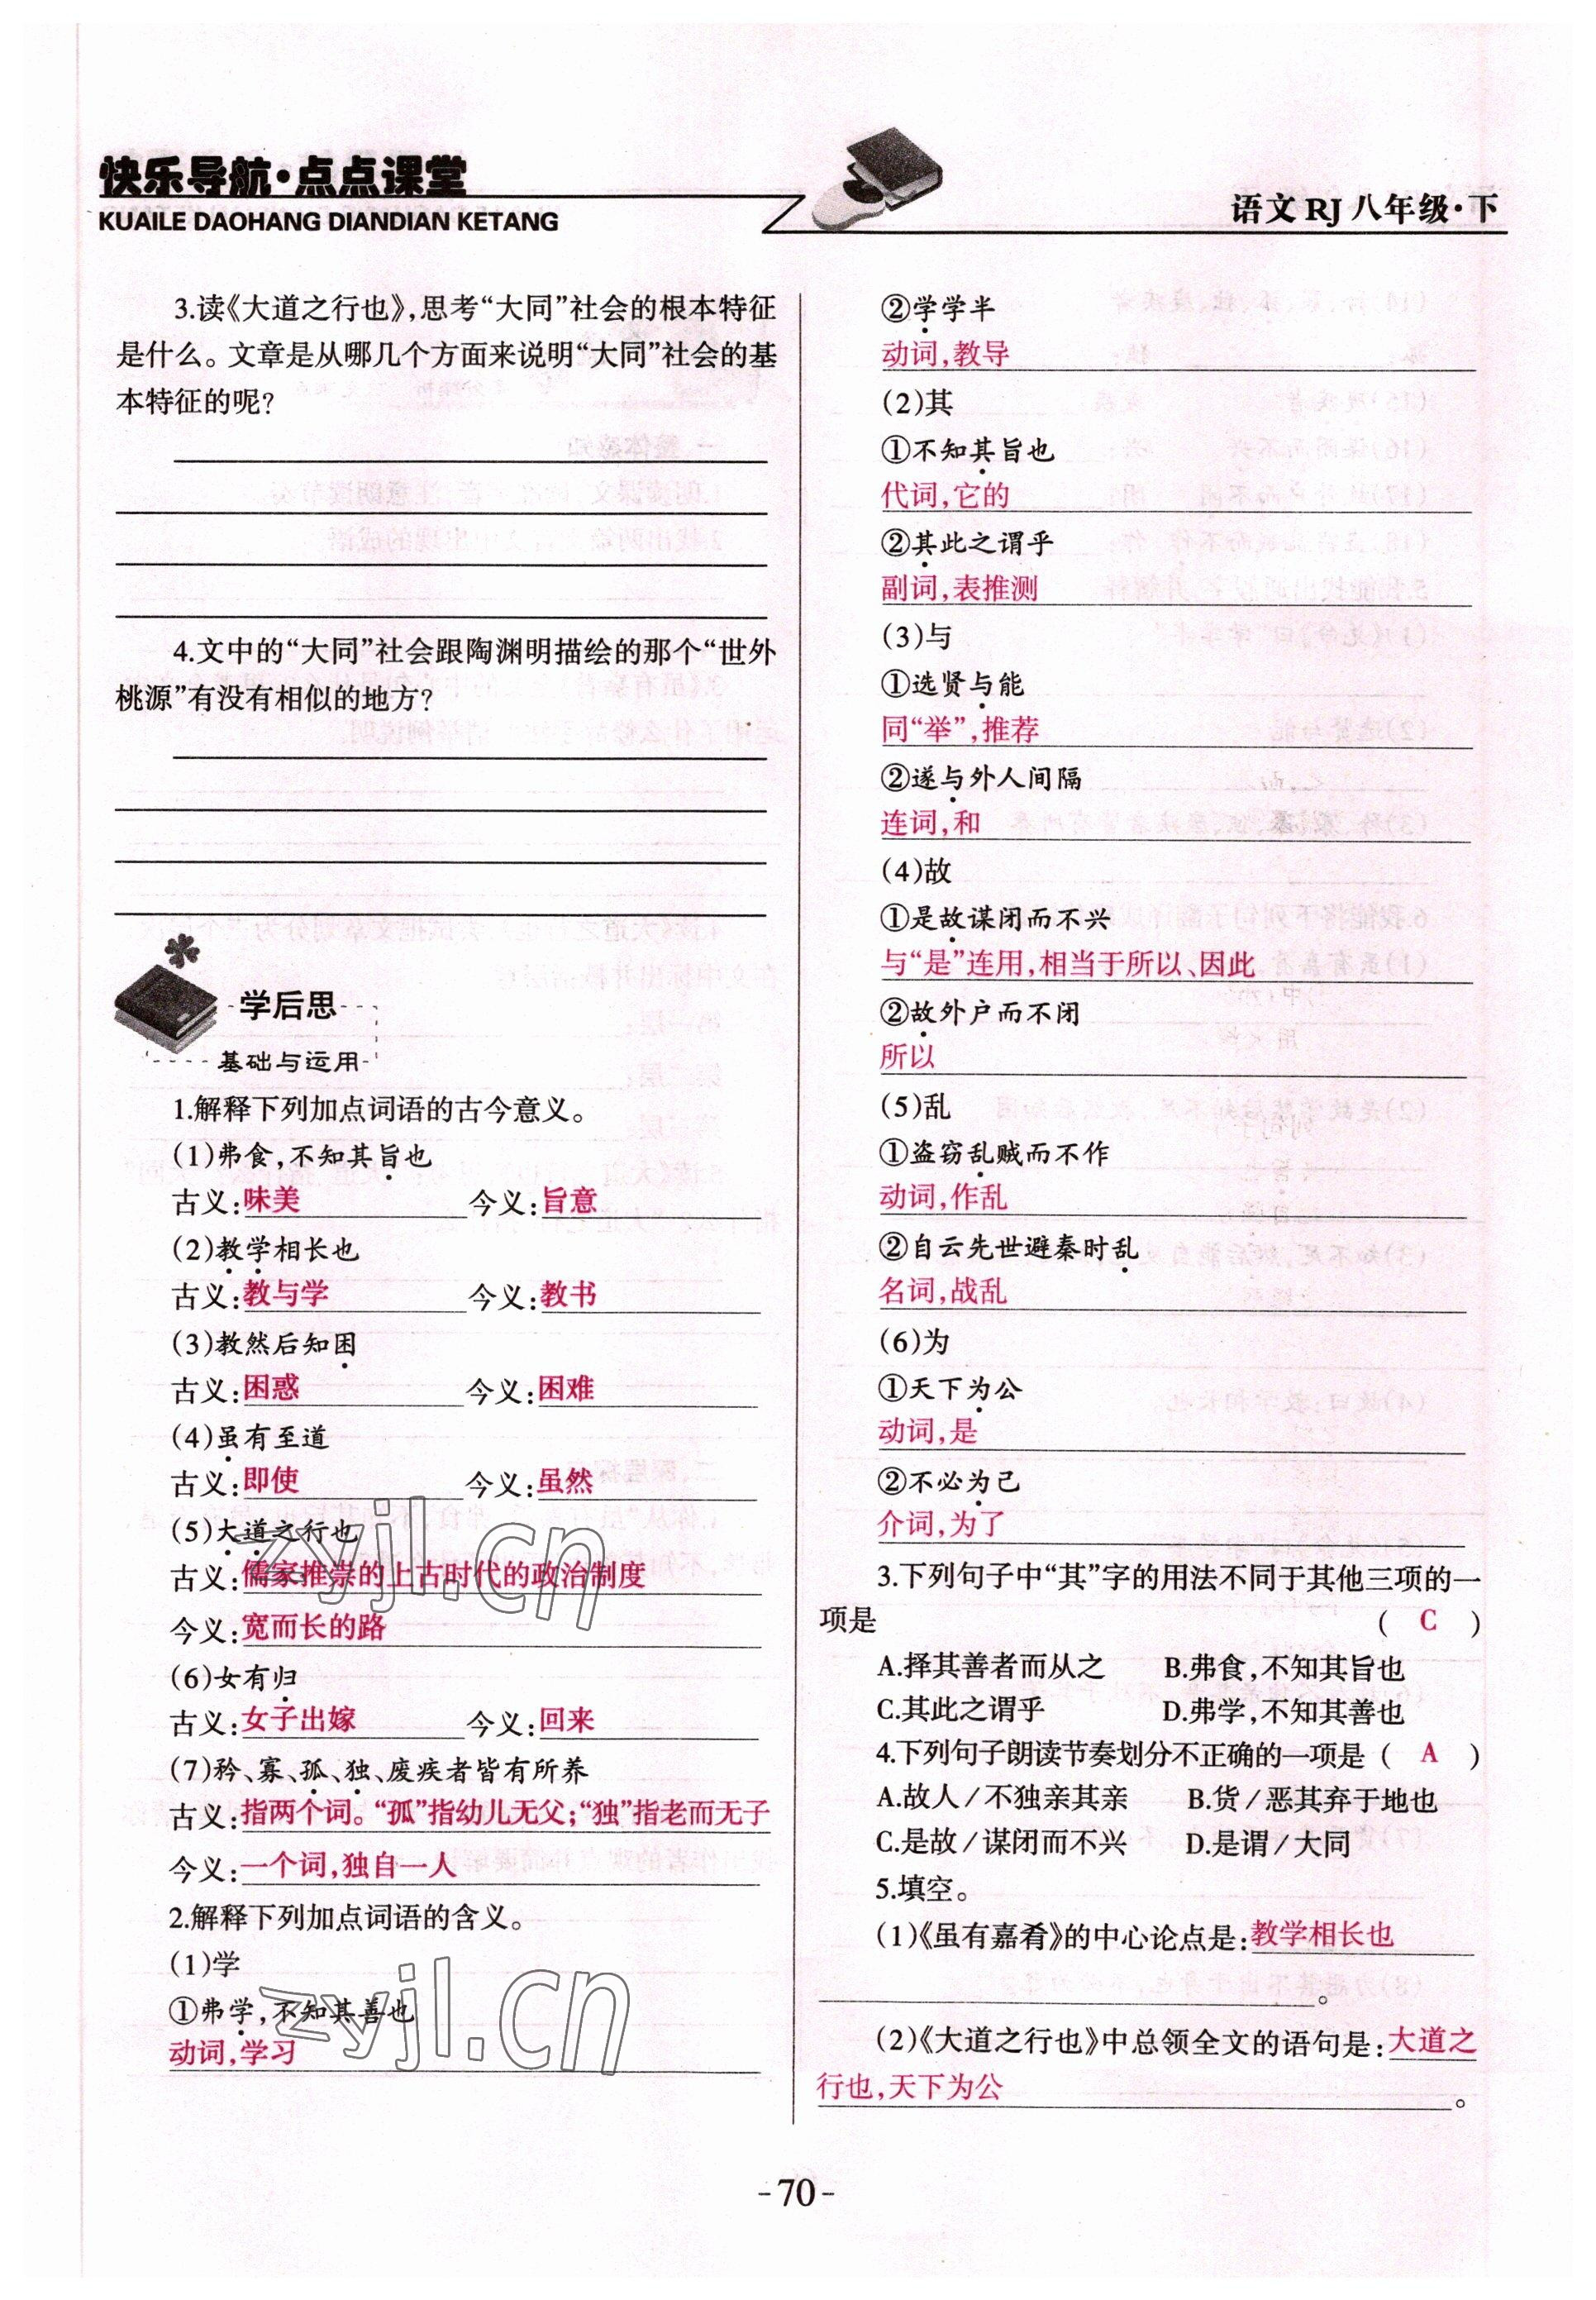 快乐导航·点点课堂
KUAILE DAOHANG DIANDIAN KETANG
语文RJ八年级·下
3.读《大道之行也》,思考“大同”社会的根本特征
是什么。文章是从哪几个方面来说明“大同”社会的基
本特征的呢?
4.文中的“大同”社会跟陶渊明描绘的那个“世外
桃源”有没有相似的地方?
学后思
基础与运用
1.解释下列加点词语的古今意义。
(1)弗食,不知其旨也
古义:味美 今义:旨意
(2)教学相长也
古义:教与学 今义:教书
(3)教然后知困
古义:困惑 今义:困难
(4)虽有至道
古义:即使 今义:虽然
(5)大道之行也
古义:儒家推崇的上古时代的政治制度
今义:宽而长的路
(6)女有归
古义:女子出嫁 今义:回来
(7)矜、寡、孤、独、废疾者皆有所养
古义:指两个词。“孤”指幼儿无父;“独”指老而无子
今义:一个词,独自一人
2.解释下列加点词语的含义。
(1)学
①弗学,不知其善也
动词,学习
②学学半
动词,教导
(2)其
①不知其旨也
代词,它的
②其此之谓乎
副词,表推测
(3)与
①选贤与能
同“举”,推荐
②遂与外人间隔
连词,和
(4)故
①是故谋闭而不兴
与“是”连用,相当于所以、因此
②故外户而不闭
所以
(5)乱
①盗窃乱贼而不作
动词,作乱
②自云先世避秦时乱
名词,战乱
(6)为
①天下为公
动词,是
②不必为己
介词,为了
3.下列句子中“其”字的用法不同于其他三项的一
项是 ( C )
A.择其善者而从之 B.弗食,不知其旨也
C.其此之谓乎 D.弗学,不知其善也
4.下列句子朗读节奏划分不正确的一项是 ( A )
A.故人/不独亲其亲 B.货/恶其弃于地也
C.是故/谋闭而不兴 D.是谓/大同
5.填空。
(1)《虽有嘉肴》的中心论点是:教学相长也
。
(2)《大道之行也》中总领全文的语句是:大道之
行也,天下为公。
-70-
zyjl.cn
zyjl.cn